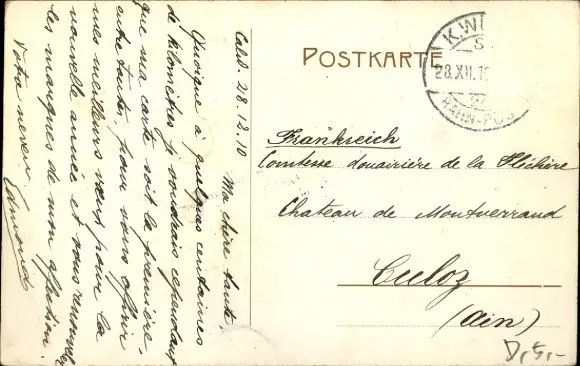 POSTKARTE
K. W
28.XII.1
BAHN-POS
Frankreich
Comtesse douairière de la Fléchère
Chateau de Montverrand
Culoz
(Ain)
Calw. 28.12.10
Ma chère tante.
Quoique à quelques centaines
de kilomètres je voudrais cependant
que ma carte soit la première,
entre toutes, pour vous offrir
mes meilleurs vœux pour la
nouvelle année et vous renouveler
les marques de mon affection.
Votre neveu Edmond